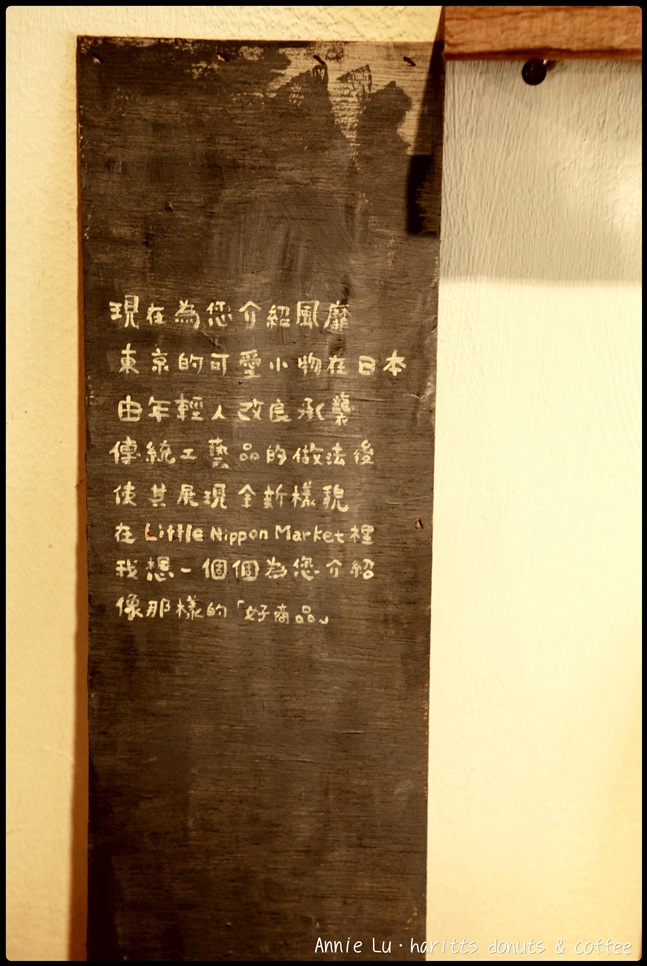 現在為您介紹風靡
東京的可愛小物在日本
由年輕人改良承襲
傳統工藝品的做法後
使其展現全新樣貌
在 Little Nippon Market 裡
我想一個個為您介紹
像那樣的「好商品」
Annie Lu · haritts donuts & coffee